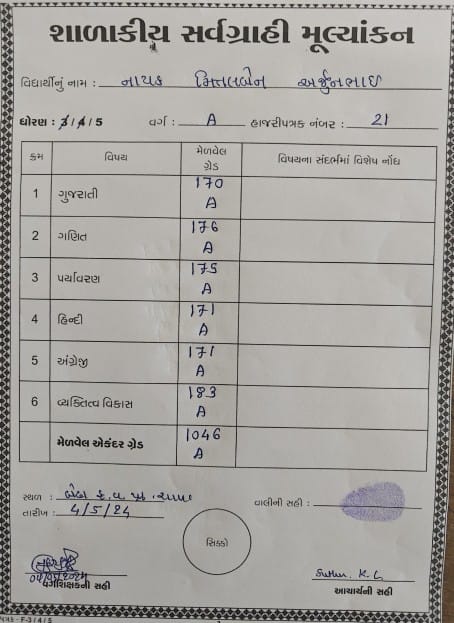 શાળાકીય સર્વગ્રાહી મૂલ્યાંકન
વિદ્યાર્થીનું નામ : નાયક મિત્તલબેન અર્જુનભાઇ
ધોરણ : 3 / 4 / 5 વર્ગ : A હાજરીપત્રક નંબર : 21
ક્રમ વિષય મેળવેલ ગ્રેડ વિષયના સંદર્ભમાં વિશેષ નોંધ
1 ગુજરાતી 170 A
2 ગણિત 176 A
3 પર્યાવરણ 175 A
4 હિન્દી 171 A
5 અંગ્રેજી 171 A
6 વ્યક્તિત્વ વિકાસ 183 A
મેળવેલ એકંદર ગ્રેડ 1046 A
સ્થળ : વાલીની સહી :
તારીખ : 4/5/24
સિક્કો
વર્ગશિક્ષકની સહી આચાર્યની સહી
પત્રક - F-3 / 4 / 5